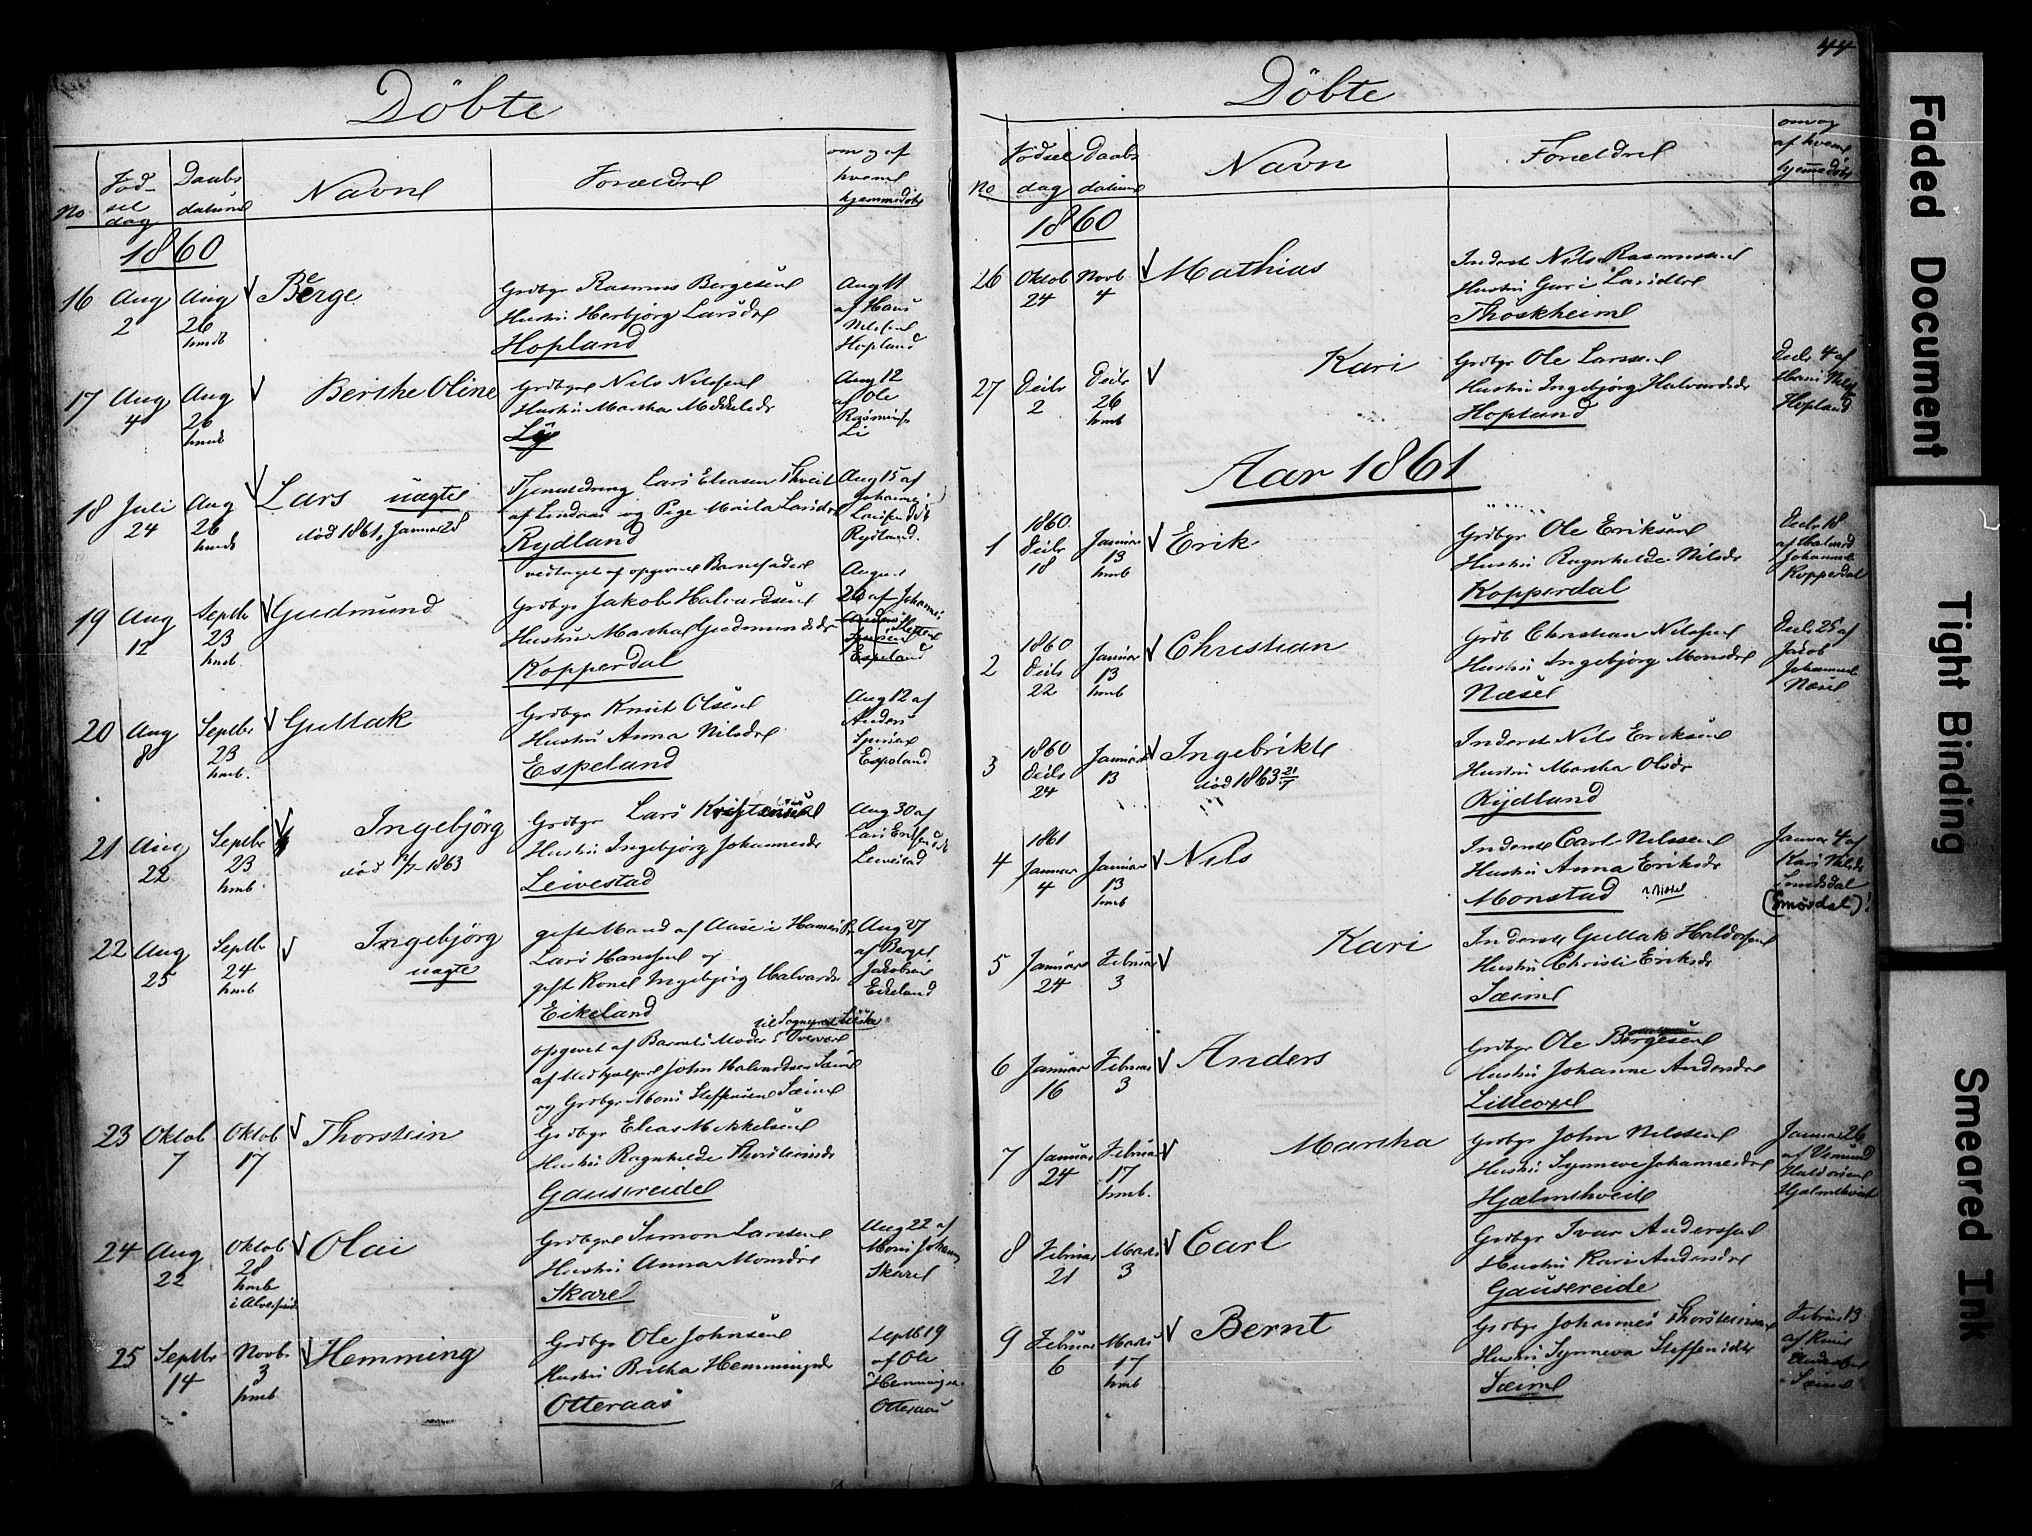 44
Döbte
No
Fød-
sel
dag
Daabs
datum
Navne
Forældre
om og af
hvem
hjemmedøbt
1860
16 Aug 2
Aug 26 hmdb
Berge
Grdbgr Rasmus Bergesen
Hustru Herbjörg Larsdr
Hopland
Aug 11
af Hans
Nilssen
Hopland
17 Aug 4
Aug 26 hmb
Berthe Oline
Grdbgr Nils Nilssen
Hustru Martha Mikkelsdr
Aug 12
af Ole
Li
18 Juli 24
Aug 26
Lars uægte
död 1861, Januar 28
Tjenestedreng Lars Eliasen Thveit
af Lindaas og Pige Larsdr
Rydland
Aug 15 af
Rydland
19 Aug 12
Septbr 23 hmb.
Gudmund
Grdbgr Jakob Halvardsen
Hustru Martha Gudmundsdr
Kopperdal
August
Espeland
20 Aug 8
Septbr 23 hmb.
Gullak
Grdbgr Knut Olsen
Hustru Anna Nilsdr
Espeland
Aug 12 af
Anders
Espeland
21 Aug 22
Septbr 23 hmb.
Ingebjörg
död 1863
Grdbgr Lars
Hustru Ingebjörg Johannesdr
Leivestad
Aug 30 af
Leivestad
22 Aug 25
Septbr 24 hmb
Ingebjörg
uægte
gift Mand af
Lars Hansen og
gift Kone Ingebjörg Halvardsdr
Eikeland
opgivet af Barnets Moder i Overvær
af Medhjelper John Halvardsen Sæim
og Grdbgr Mons Steffensen Sæim
Aug 27
af Berget
Jakobsen
Eikeland
23 Oktob 7
Oktob 17
Thorstein
Grdbgr Elias Mikkelsen
Hustru Ragnhilde Thorsteinsdr
Gausereidel
24 Aug 22
Oktob 28 hmb
Olai
Grdbgr Simon Larssen
Hustru Anna Monsdr
Skarel
Aug 22 af
Skarel
25 Septbr 14
Novb. 3 hmb
Hemming
Grdbgr Ole Johnsen
Hustru Britha Hemmingsdr
Otteraas
Septb 19
af Ole
Otteraas
Döbte
No
Fødsel
dag
Daabs
datum
Navn
Forældre
om og
af hvem
hjemmedøbt
1860
26 Oktob 24
Novb. 4
Mathias
Inderst Nils Rasmussen
Hustru Guri Larsdtr
Thoskheim
27 Decbr 2
Decbr 26 hmb
Kari
Grdbgr Ole Larssen
Hustru Ingebjörg Halvardsdr
Hopland
Decbr 4 af
Hopland
Aar 1861
1 1860 Decbr 18
Januar 13 hmb
Erik
Grdbgr Ole Eriksen
Hustru Ragnhilde Nilsdr
Kopperdal
Decbr 18
af Halvard
Johannes
Kopperdal
2 1860 Decbr 22
Januar 13 hmb
Christian
Grdb Christian Nilssen
Hustru Ingebjörg Monsdr
Næsel
Decbr 25 af
Jacob
Johannes
Næsel
3 1860 Decbr 24
Januar 13
Ingebrikt
död 1863 21/7
Inderst Nils Eriksen
Hustru Martha Olsdr
Rydland
4 1861 Januar 4
Januar 13 hmb
Nils
Inderst Carl Nilssen
Hustru Anna Eriksdr
Monstad
Januar 4 af
Kari Nilsdr
(Smørdal)!
5 Januar 24
Februar 3
Kari
Inderst Gullak Haldorsen
Hustru Christi Eriksdr
Sæim
6 Januar 16
Februar 3
Anders
Grdbgr Ole Börgesen
Hustru Johanne Andersdr
Lilleoxel
7 Januar 24
Februar 17 hmb.
Martha
Grdbgr John Nilssen
Hustru Synneve Johannesdr
Hjælmthveit
Januar 26
af Vemund
Haldorsen
Hjelmthveit
8 Februar 21
Marts 3
Carl
Grdbgr Ivar Anderssen
Hustru Kari Andersdr
Gausereide
9 Februar 6
Marts 17 hmb
Bernt
Grdbgr Johannes Thorsteinsen
Hustru Synneva Steffensdtr
Sæim
Februar 13
af Knut
Sæim
Faded Document
Tight Binding
Smeared Ink